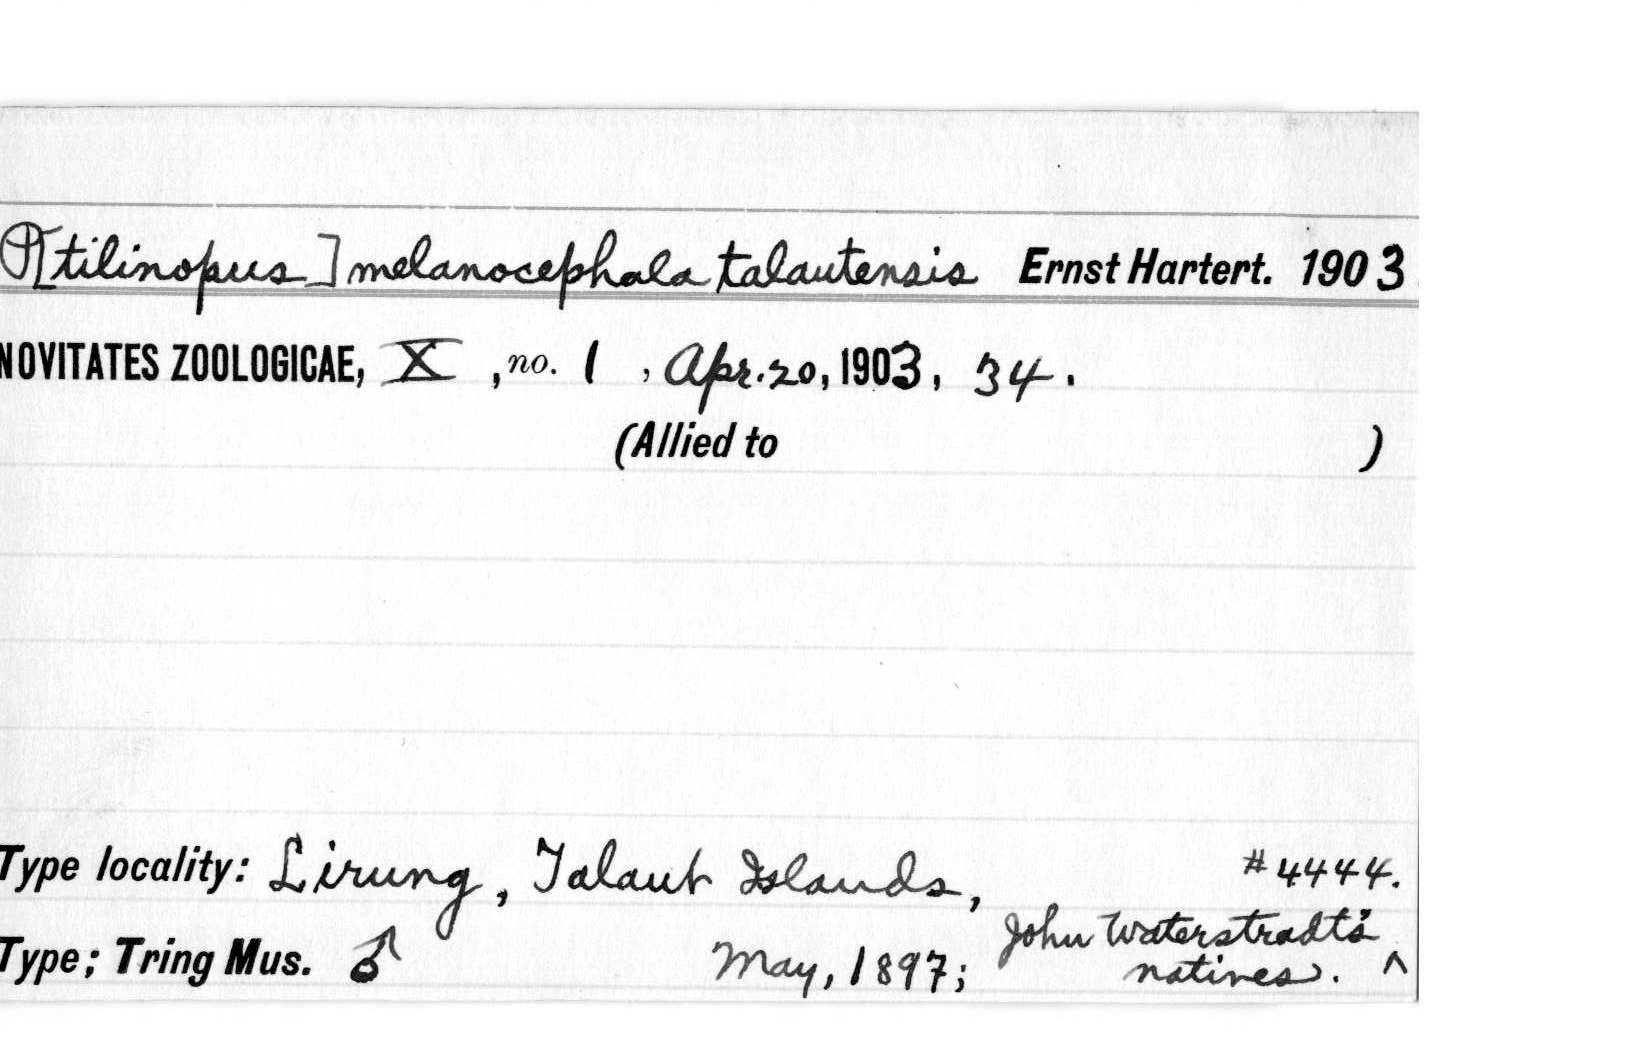 P[tilinopus] melanocephala talautensis Ernst Hartert. 1903
NOVITATES ZOOLOGICAE, X, no. 1, Apr. 20, 1903, 34.
(Allied to )
Type locality: Lirung, Talaut Islands, #4444.
Type; Tring Mus. ♂ May, 1897; John Waterstradt's
natives. ^